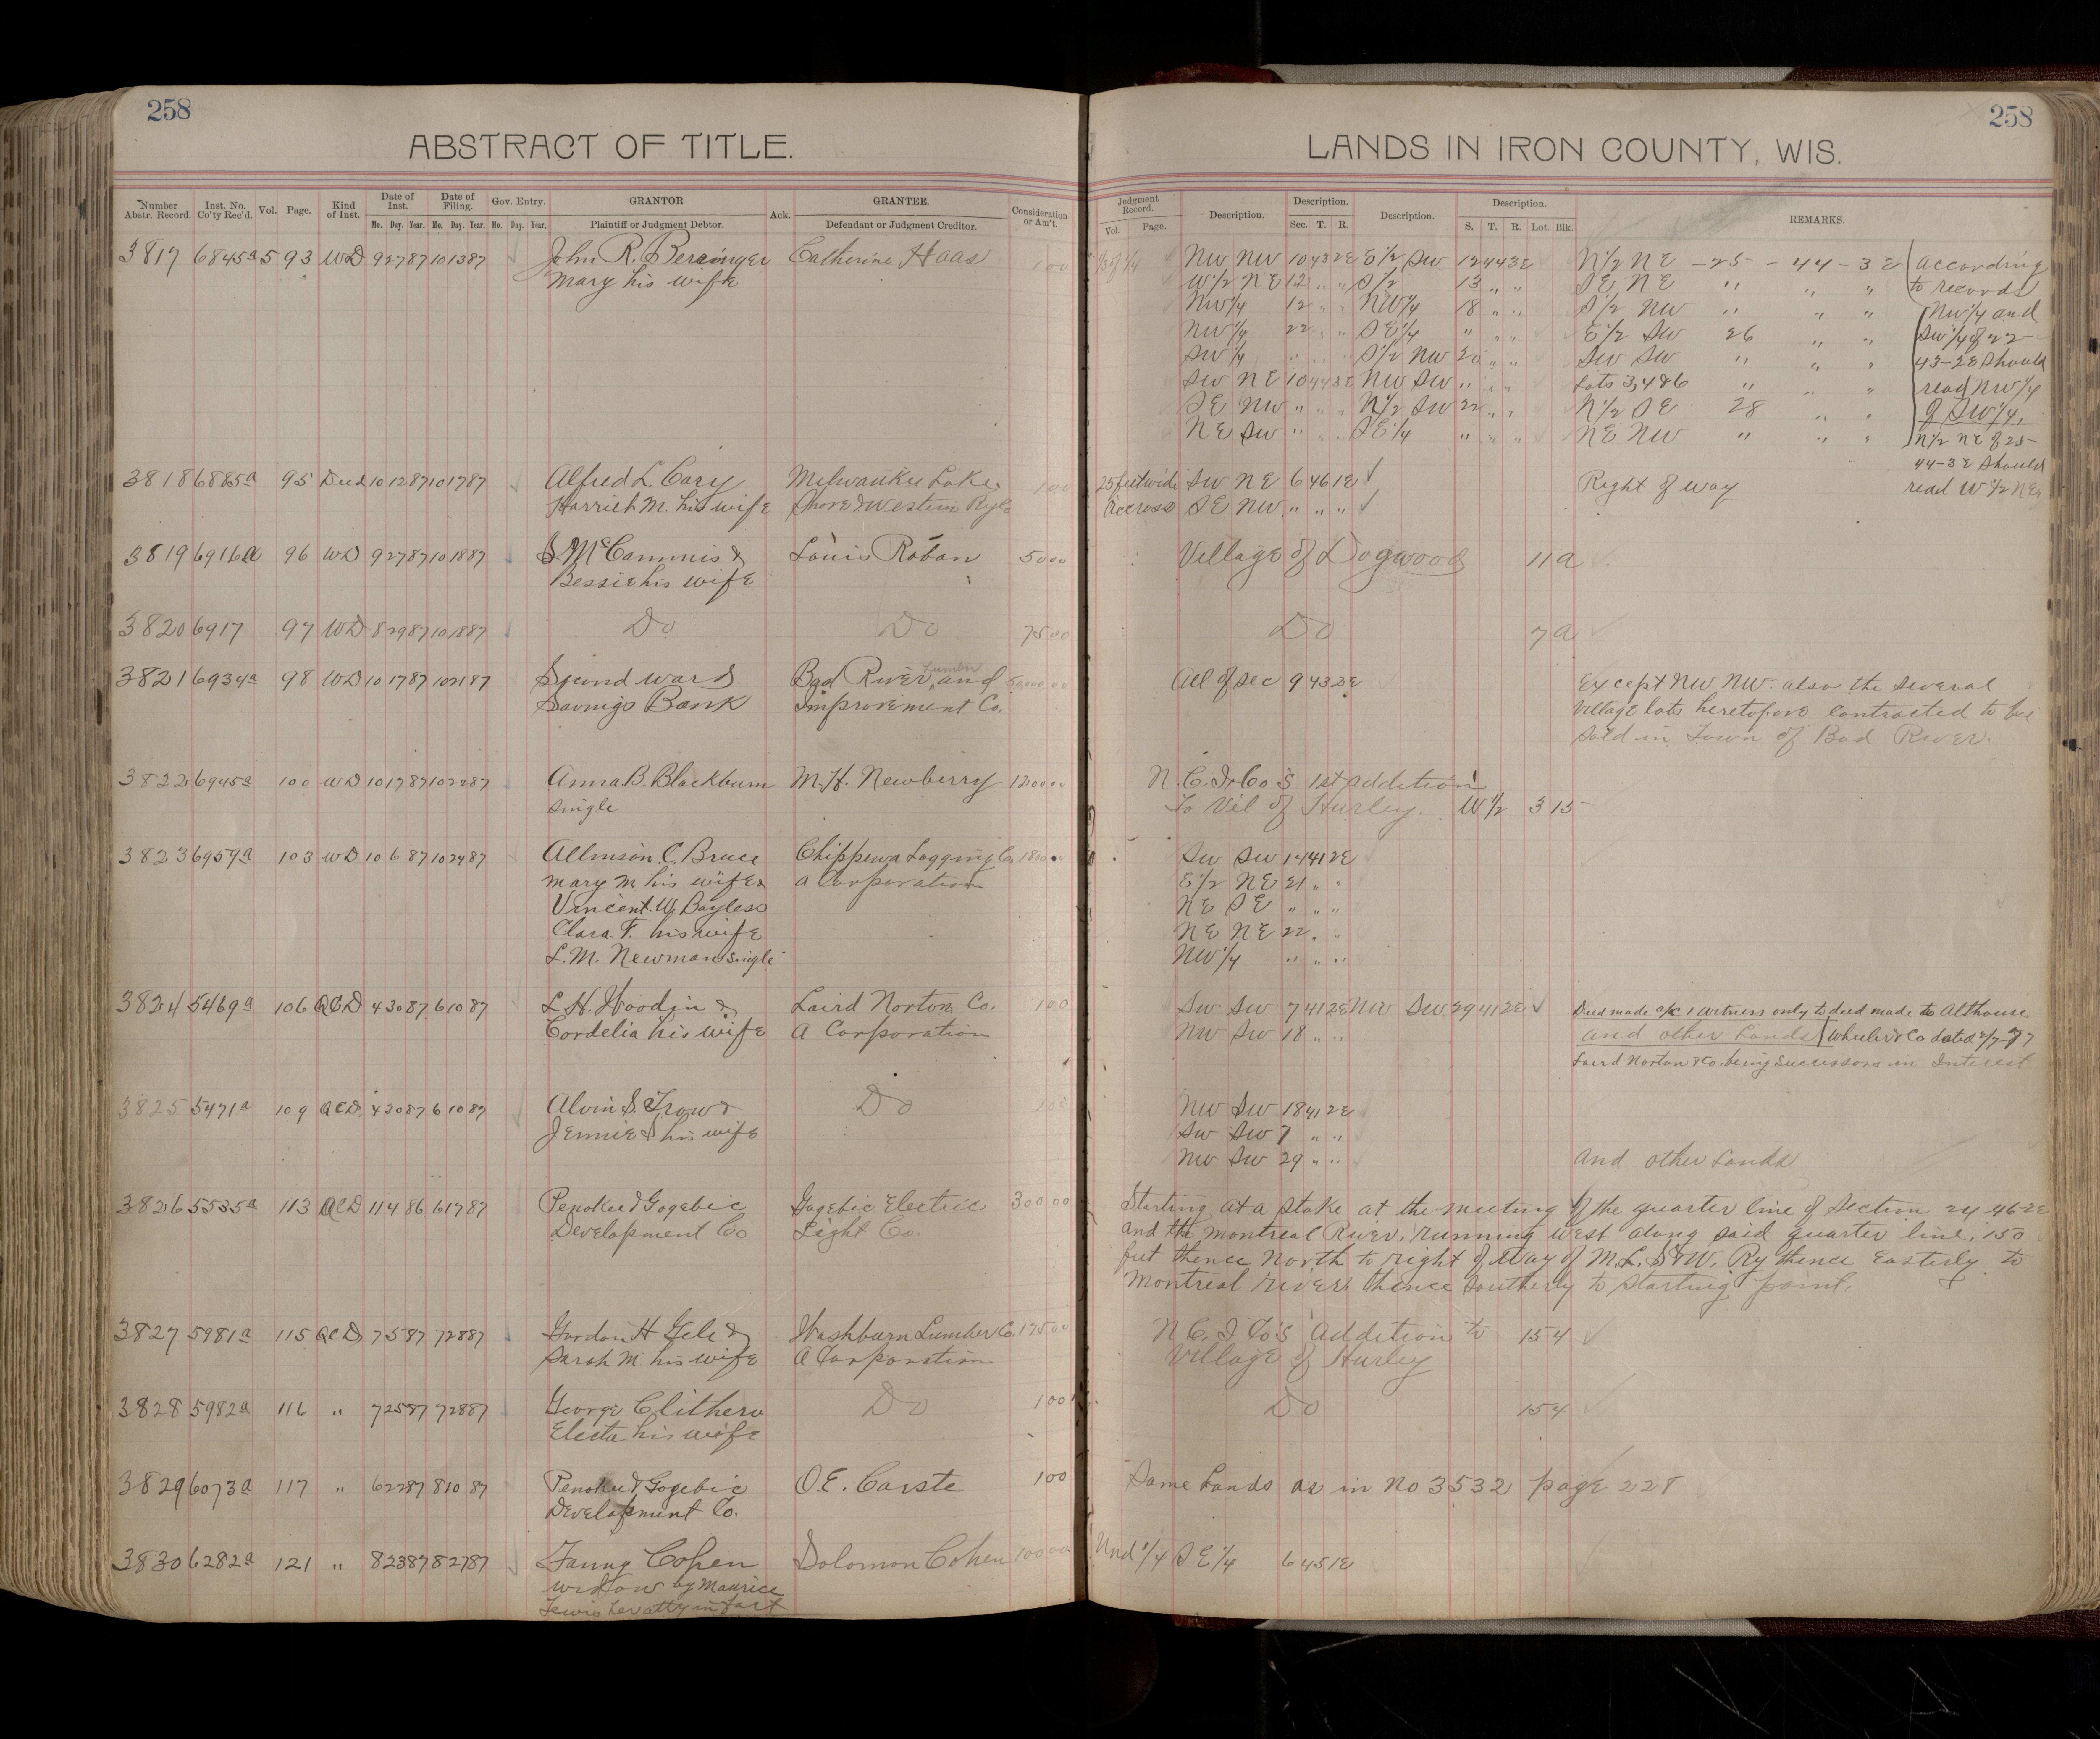 258
ABSTRACT OF TITLE.
Number Abstr. Record. Inst. No. Co'ty Rec'd. Vol. Page. Kind of Inst. Date of Inst. Mo. Day. Year. Date of Filing. Mo. Day. Year. Gov. Entry. Mo. Day. Year. GRANTOR Plaintiff or Judgment Debtor. Ack. GRANTEE. Defendant or Judgment Creditor. Consideration or Am't.
3817 6845a 5 93 WD 9 27 87 10 13 87 John R. Beringer Catherine Haas 100
Mary his wife
3818 6885a 95 Deed 10 12 87 10 17 87 Alfred L. Cary Milwaukee Lake 100
Harriet M. his wife Shore & Western Ry Co
3819 6916a 96 WD 9 27 87 10 18 87 S McCammis & Louis Roban 50 00
Bessie his wife
3820 6917 97 WD 8 29 87 10 18 87 Do Do 75 00
3821 6934a 98 WD 10 17 87 10 21 87 Second ward Bad River Lumber and
Savings Bank Improvement Co.
3822 6945a 100 WD 10 17 87 10 22 87 Anna B. Blackburn M. H. Newberry 1200 00
single
3823 6959a 103 WD 10 6 87 10 24 87 Allinson C. Bruce Chippewa Logging Co
Mary M. his wife & a Corporation
Vincent W. Bayless
Clara F. his wife
L. M. Newman single
3824 5469a 106 QCD 4 30 87 6 10 87 L. H. Woodin & Laird Norton Co. 1 00
Cordelia his wife A Corporation
3825 5471a 109 QCD 4 20 87 6 10 87 Alvin S. Trow & Do 1 00
Jennie S his wife
3826 5535a 113 QCD 11 4 86 6 17 87 Penokee & Gogebic Gogebic Electric 300 00
Development Co Light Co.
3827 5981a 115 QCD 7 5 87 7 28 87 Gordon H Gele & Washburn Lumber Co. 175 00
Sarah M his wife A Corporation
3828 5982a 116 " 7 25 87 7 28 87 George Clithero Do 1 00
Electa his wife
3829 6073a 117 " 6 22 87 8 10 87 Penokee & Gogebic O. E. Carste 1 00
Development Co.
3830 6282a 121 " 8 23 87 8 27 87 Fanny Cohen Solomon Cohen 100 00
widow by Maurice
Lewis her atty in fact
258
LANDS IN IRON COUNTY, WIS.
Judgment Record. Vol. Page. Description. Description. Sec. T. R. Description. Description. S. T. R. Lot. Blk. REMARKS.
NW NW 10 43 2E E 1/2 SW 12 44 3E N 1/2 NE - 25 - 44 - 3 E according
W 1/2 NE 12 " " S 1/2 13 " " SE NE " " " to records
NW 1/4 12 " " NW 1/4 18 " " S 1/2 NW " " " NW 1/4 and
NW 1/4 22 " " SE 1/4 " " " E 1/2 SW 26 " " SW 1/4 of 22-
SW 1/4 " " " S 1/2 NW 20 " " SW SW " " " 43-2E should
SW NE 10 44 3E NW SW " " " Lots 3, 4 & 6 " " " read NW 1/4
SE NW " " " N 1/2 SW 22 " " N 1/2 SE 28 " " of SW 1/4.
NE SW " " " SE 1/4 " " " NE NW " " " N 1/2 NE of 25-
44-3E should
25 feet wide SW NE 6 46 1E Right of way read W 1/2 NE
Accross SE NW " " "
Village of Dogwood 11 a
Do 7 a
All of sec 9 43 2E Except NW NW. also the several
village lots heretofore contracted to be
sold in Town of Bad River.
N. C. I. Co's 1st addition
To Vil of Hurley. W 1/2 3 15
SW SW 14 41 2E
E 1/2 NE 21 " "
NE SE " " "
NE NE 22 " "
NW 1/4 " " "
SW SW 7 41 2E NW SW 29 41 2E Deed made a/c 1 witness only to deed made to Althouse
NW SW 18 " " and other Lands Wheeler & Co dated
Laird Norton & Co. being Successors in Interest
NW SW 18 41 2E
SW SW 7 " "
NW SW 29 " " and other Lands
Starting at a stake at the meeting of the quarter line of Section 24 46-2E
and the Montreal River, running West along said quarter line, 150
feet thence North to right of way of M. L. S & W. Ry thence Easterly to
Montreal River thence Southerly to starting point.
N. C. I Co's Addition to 15 4
Village of Hurley
Do 15 4
Same Lands as in No 3532 page 228
Und 1/4 SE 1/4 6 45 1E